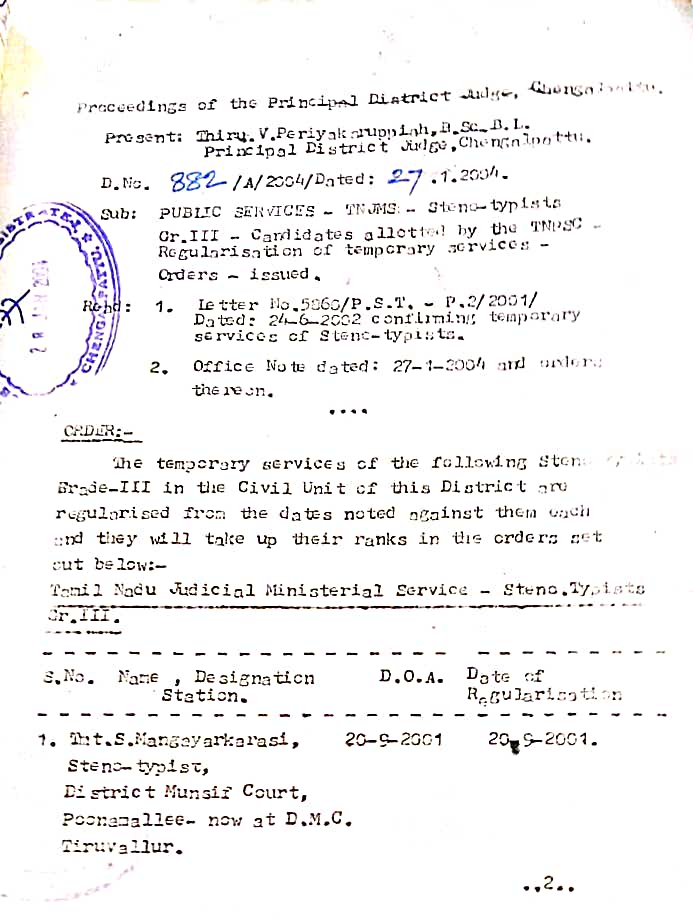 Proceedings of the Principal District Judge, Chengalpattu.
Present: Thiru.V.Periyakaruppiah,B.Sc.B.L.
Principal District Judge,Chengalpattu.
D.No. 882/A/2004/Dated: 27.1.2004.
Sub: PUBLIC SERVICES - TNJMS - Steno-typists
Gr.III - Candidates allotted by the TNPSC -
Regularisation of temporary services -
Orders - issued.
Read: 1. Letter No.5868/P.S.T. - P.2/2001/
Dated: 24-6-2002 confirming temporary
services of Steno-typists.
2. Office Note dated: 27-1-2004 and orders
thereon.
....
ORDER:-
The temporary services of the following Steno-typists
Grade-III in the Civil Unit of this District are
regularised from the dates noted against them each
and they will take up their ranks in the orders set
out below:-
Tamil Nadu Judicial Ministerial Service - Steno.Typists
Gr.III.
S.No. Name , Designation D.O.A. Date of
Station. Regularisation
1. Tmt.S.Mangayarkarasi, 20-9-2001 20-9-2001.
Steno-typist,
District Munsif Court,
Poonamallee- now at D.M.C.
Tiruvallur.
..2..